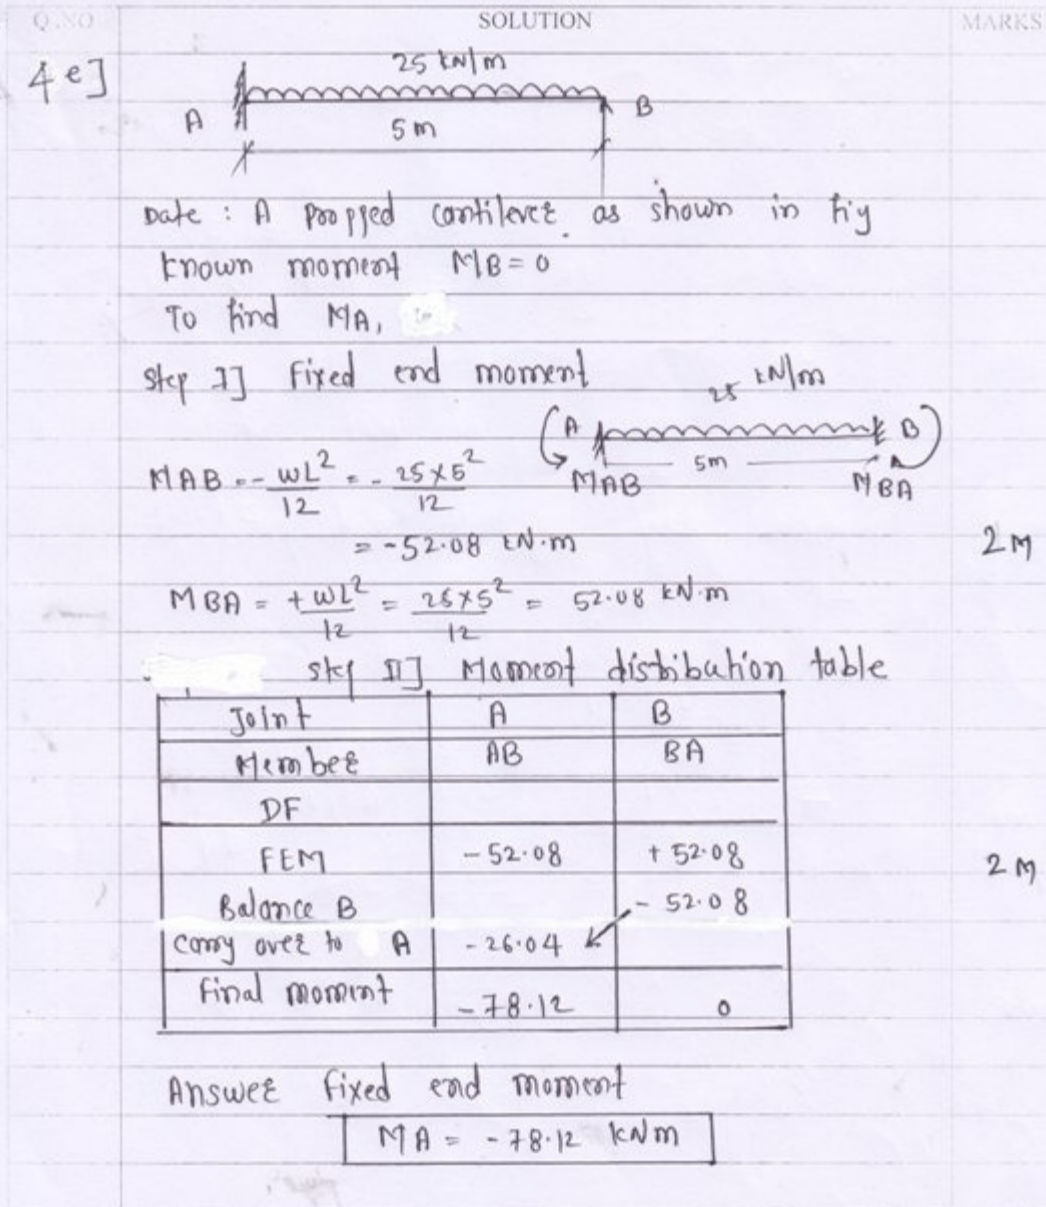 Q.NO SOLUTION MARKS
4 e]
25 kN/m
A B
5 m
Date : A propped cantilever as shown in fig
known moment MB = 0
To find MA,
Step I] Fixed end moment
25 kN/m
A B
5m
MAB MBA
MAB = - wL²/12 = - 25×5²/12
= -52.08 kN.m 2M
MBA = + wL²/12 = 25×5²/12 = 52.08 kN.m
step II] Moment distibution table
Joint A B
Member AB BA
DF
FEM -52.08 +52.08 2M
Balance B - 52.08
carry over to A -26.04
final moment -78.12 0
Answer fixed end moment
MA = -78.12 kNm